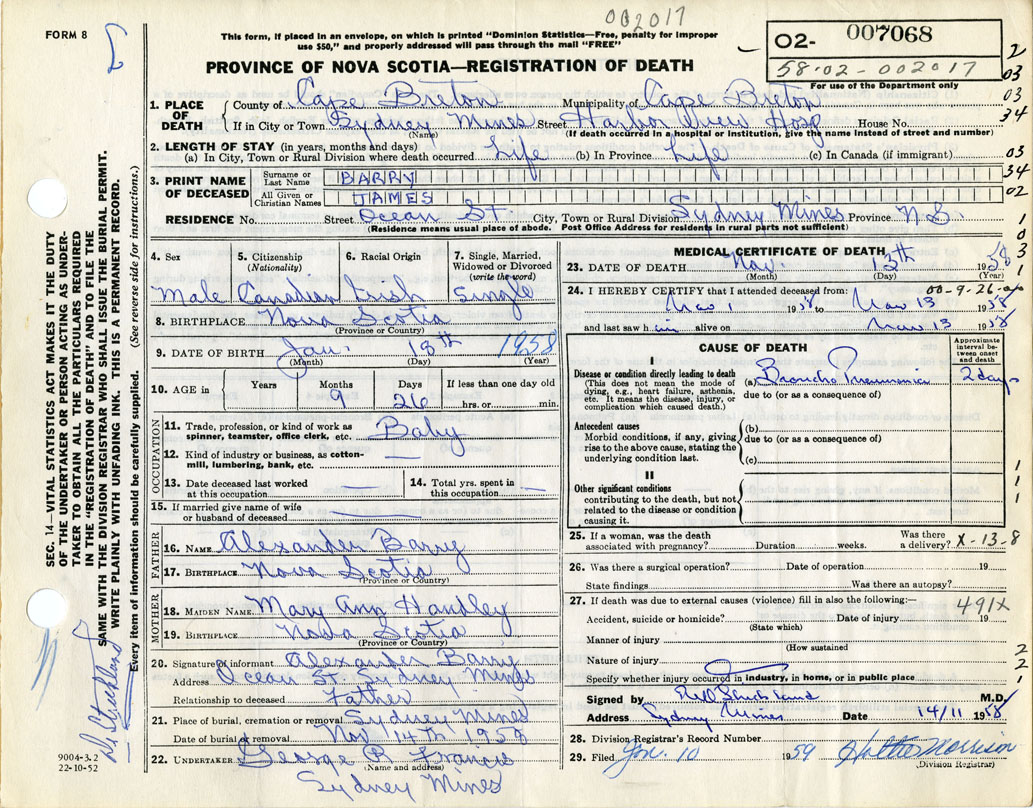 002017
FORM 8
This form, if placed in an envelope, on which is printed "Dominion Statistics—Free, penalty for improper
use $50," and properly addressed will pass through the mail "FREE"
PROVINCE OF NOVA SCOTIA—REGISTRATION OF DEATH
02- 007068
58-02-002017
For use of the Department only
2
03
03
34
03
34
02
1
0
3
1. PLACE OF DEATH
County of Cape Breton Municipality of Cape Breton
If in City or Town Sydney Mines Street Harbor View Hosp House No.
(Name) (If death occurred in a hospital or institution, give the name instead of street and number)
2. LENGTH OF STAY (in years, months and days)
(a) In City, Town or Rural Division where death occurred Life (b) In Province Life (c) In Canada (if immigrant)
3. PRINT NAME OF DECEASED
Surname or Last Name BARRY
All Given or Christian Names JAMES
RESIDENCE No. Street Ocean St. City, Town or Rural Division Sydney Mines Province N.S.
(Residence means usual place of abode. Post Office Address for residents in rural parts not sufficient)
SEC. 14—VITAL STATISTICS ACT MAKES IT THE DUTY
OF THE UNDERTAKER OR PERSON ACTING AS UNDER-
TAKER TO OBTAIN ALL THE PARTICULARS REQUIRED
IN THE "REGISTRATION OF DEATH" AND TO FILE THE
SAME WITH THE DIVISION REGISTRAR WHO SHALL ISSUE THE BURIAL PERMIT.
WRITE PLAINLY WITH UNFADING INK. THIS IS A PERMANENT RECORD.
Every item of information should be carefully supplied. (See reverse side for instructions.)
Dr Strickland
9004-3.2
22-10-52
4. Sex
Male
5. Citizenship
(Nationality)
Canadian
6. Racial Origin
Irish
7. Single, Married,
Widowed or Divorced
(write the word)
Single
8. BIRTHPLACE Nova Scotia
(Province or Country)
9. DATE OF BIRTH Jan. 18th 1958
(Month) (Day) (Year)
10. AGE in
Years Months Days If less than one day old
9 26 hrs. or min.
OCCUPATION
11. Trade, profession, or kind of work as
spinner, teamster, office clerk, etc. Baby
12. Kind of industry or business, as cotton-
mill, lumbering, bank, etc. —
13. Date deceased last worked
at this occupation —
14. Total yrs. spent in
this occupation —
15. If married give name of wife
or husband of deceased —
FATHER
16. NAME Alexander Barry
17. BIRTHPLACE Nova Scotia
(Province or Country)
MOTHER
18. MAIDEN NAME Mary Ann Handley
19. BIRTHPLACE Nova Scotia
(Province or Country)
20. Signature of informant Alexander Barry
Address Ocean St. Sydney Mines
Relationship to deceased Father
21. Place of burial, cremation or removal Sydney Mines
Date of burial or removal Nov 14th 1958
22. UNDERTAKER George R Francis
(Name and address)
Sydney Mines
MEDICAL CERTIFICATE OF DEATH
23. DATE OF DEATH Nov. 13th 1958
(Month) (Day) (Year)
24. I HEREBY CERTIFY that I attended deceased from:
Nov 1 1958 to Nov 13 1958
and last saw him alive on Nov 13 1958
CAUSE OF DEATH
Approximate
interval be-
tween onset
and death
I
Disease or condition directly leading to death
(This does not mean the mode of
dying, e.g., heart failure, asthenia,
etc. It means the disease, injury, or
complication which caused death.)
(a) Broncho Pneumonia 2 days
due to (or as a consequence of)
Antecedent causes
Morbid conditions, if any, giving
rise to the above cause, stating the
underlying condition last.
(b)
due to (or as a consequence of)
(c)
II
Other significant conditions
contributing to the death, but not
related to the disease or condition
causing it.
1
1
1
25. If a woman, was the death
associated with pregnancy? Duration weeks. Was there
a delivery? X-13-8
26. Was there a surgical operation? Date of operation 19
State findings Was there an autopsy?
27. If death was due to external causes (violence) fill in also the following:—
491X
Accident, suicide or homicide? Date of injury 19
(State which)
Manner of injury
(How sustained
Nature of injury
Specify whether injury occurred in industry, in home, or in public place
2
2
1
Signed by Strickland M.D.
Address Sydney Mines Date 14/11 1958
28. Division Registrar's Record Number
29. Filed Jan. 10 1959 Morrison
(Division Registrar)